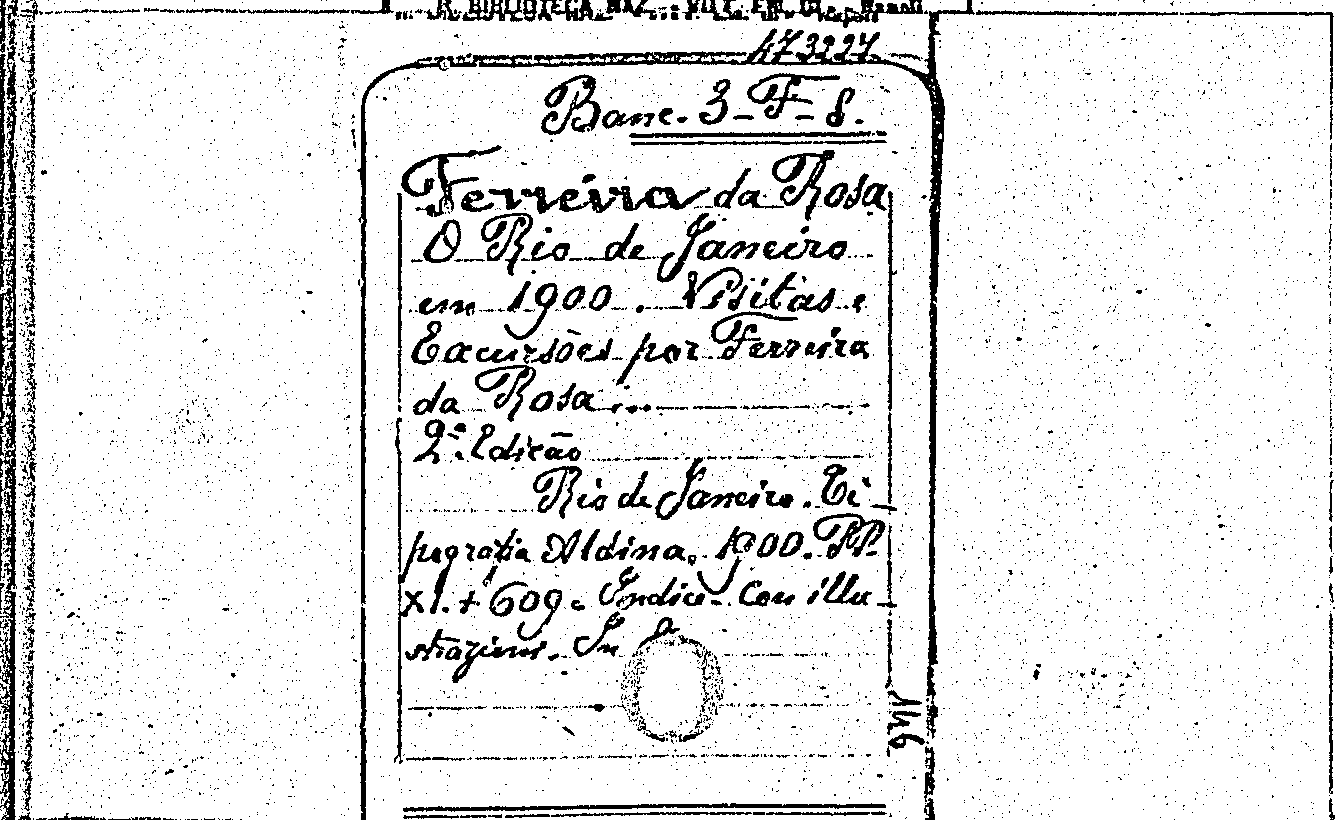 R. BIBLIOTECA NAZ. VITT. EM. III - Napoli
473227
Banc. 3-F-8.
Ferreira da Rosa
O Rio de Janeiro
em 1900. Visitas e
Excursões por Ferreira
da Rosa...
2ª. Edicão
Rio de Janeiro. Ti-
pografia Aldina, 1900. PP.
XI. + 609. Indice. Con illu-
strazioni. In 8